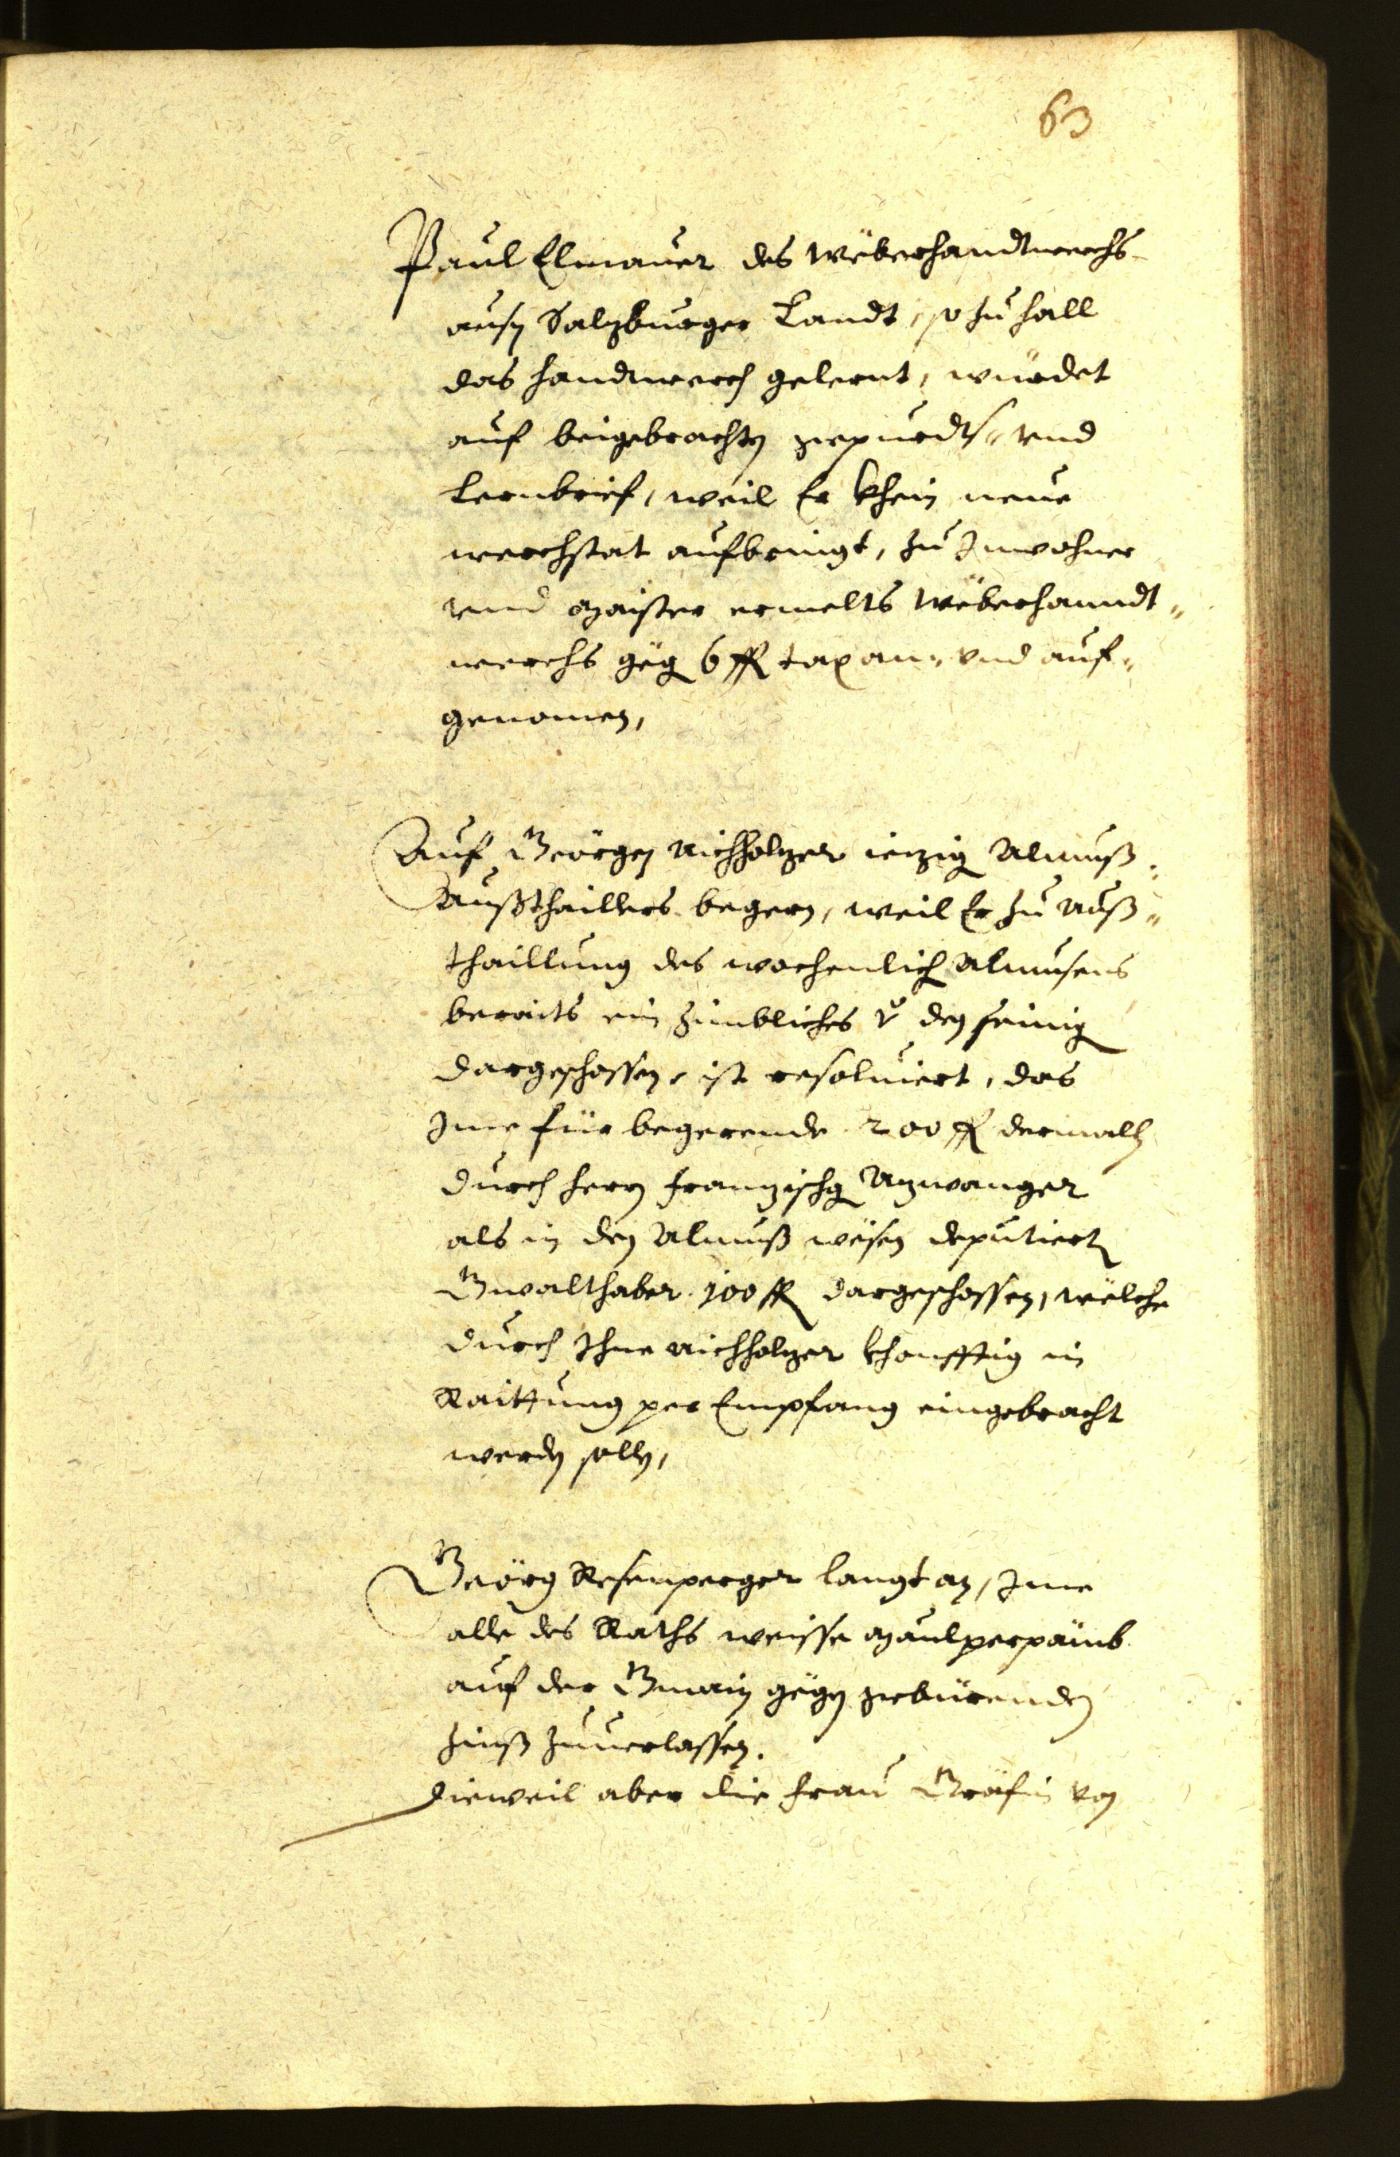 63
Paul Elmauer des Wëberhandtwerchs
ausn Salzburger Landt, so zu Hall
das Handtwerch gelernt, würdet
auf beigebrachtn gepurdts- vnd
Lernbrief, weil Er khein neue
werchstat aufbringt, zu Inwohner
vnd Maister ermelts Wëberhanndt-
werchs gëgn 6 fl tax an- vnd auf-
genomen,
Auf Geörgen Aichholzer iezign Almuß-
Außthaillers begern, weil Er zu Auß-
thaillung des wochenlichn Almusens
beraits ein zimbliches v den seinign
dargeschossen, ist resoluiert, das
Ime für begerende 200 fl dermalln
durch Herrn Franzischgn Azwanger
als in den Almuß wësen deputiertn
Gwalthaber 100 fl dargeschossen, wëlche
durch Ihne Aichholzer khonfftig in
Raittung per Empfang eingebracht
werdn solln,
Geörg Rosenperger langt an, Ime
alle des Raths weisse Maulperpaümb
auf der Gmain gëgen gebürenden
Zinß zuuerlassen.
Dieweil aber die Frau Gräfin von